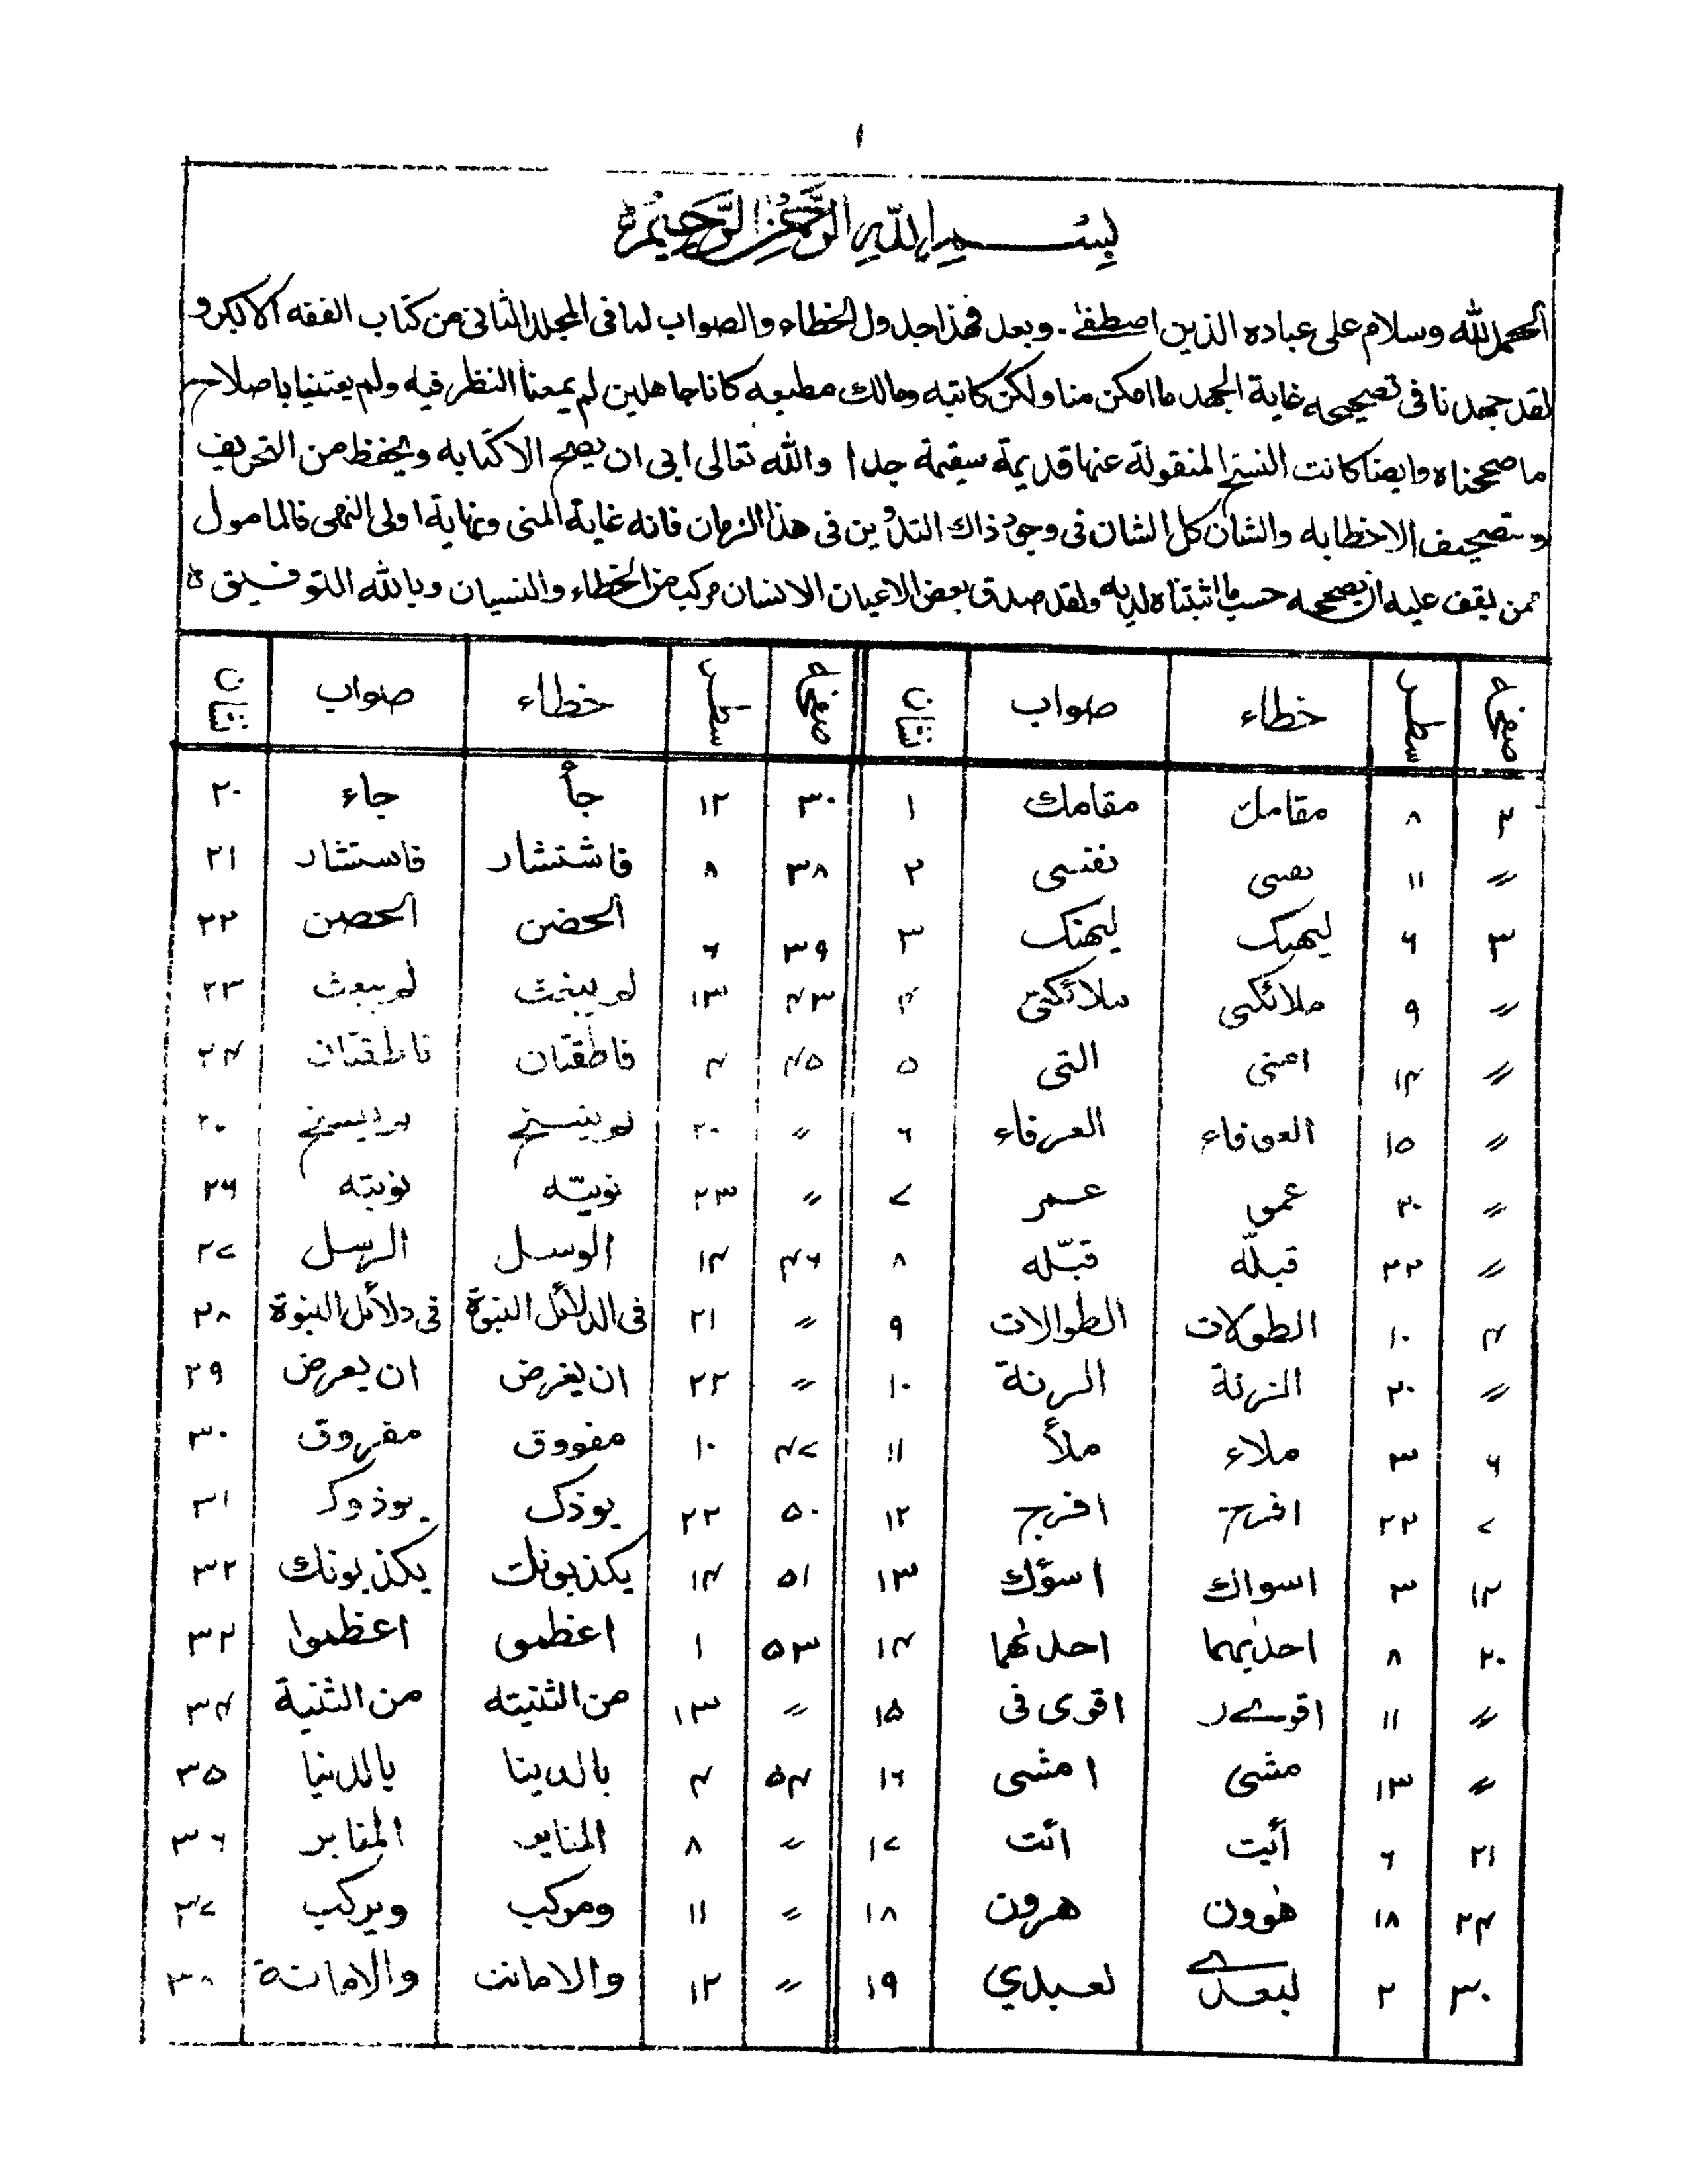 ١
بسم الله الرحمن الرحيم
الحمد لله وسلام على عباده الذين اصطفى . وبعد فهذا جدول الخطاء والصواب لما فى المجلد الثانى من كتاب الفقه الاكبر و
لقد جهدنا فى تصحيحه غاية الجهد ما امكن منا ولكن كاتبه ومالك مطبعه كانا جاهلين لم يمعنا النظر فيه ولم يعتنيا باصلاح
ما صححناه وايضا كانت النسخ المنقولة عنها قديمة سقيمة جدا والله تعالى ابى ان يصح الا كتابه ويحفظ من التحريف
وتصحيف الا خطابه والشان كل الشان فى وجود ذاك التدوين فى هذا الزمان فانه غاية المنى ونهاية اولى النهى فالمامول
ممن يقف عليه ان يصححه حسب ما اثبتناه لديه ولقد صدق بعض الاعيان الانسان مركب من الخطاء والنسيان وبالله التوفيق ه
صفحه سطر خطاء صواب نشان صفحه سطر خطاء صواب نشان
٢ ٨ مقامل مقامك ١ ٣٠ ١٢ جأ جاء ٢٠
〃 ١١ نفسى ٢ ٣٨ ٨ فاشتشار فاستشار ٢١
٣ ٦ ليهبك ليهنك ٣ ٣٩ ٦ الحضن الحصن ٢٢
〃 ٩ ملائكى ملائكتى ٤ ٤٣ ١٣ لم يبغث لم يبعث ٢٣
〃 ١٤ امنى التى ٥ ٤٥ ٤ فاطقتان ناطقتان ٢٤
〃 ١٥ العوفاء العرفاء ٦ 〃 ٢٠
〃 ٢٠ عمو عمر ٧ 〃 ٢٣ نوبيّه نوبته ٢٦
〃 ٢٢ قبلّه قبّله ٨ ٤٦ ١٤ الوسل الرسل ٢٧
٤ ١٠ الطولات الطوالات ٩ 〃 ٢١ فى الدلائل النبوة فى دلائل النبوة ٢٨
〃 ٢٠ الزنة الرنة ١٠ 〃 ٢٢ ان يغرض ان يعرض ٢٩
٦ ٣ ملاء ملأ ١١ ٤٧ ١٠ مفووق مفروق ٣٠
٧ ٢٢ افرح افرج ١٢ ٥٠ ٢٢ يوذك يوذوك ٣١
١٢ ٣ اسواك اسؤك ١٣ ٥١ ١٤ يكذبونك يكذبونك ٣٢
٢٠ ٨ احديهما احدهما ١٤ ٥٣ ١ اعظمو اعظموا ٣٣
〃 ١١ اقوے ر اقوى فى ١٥ 〃 ١٣ من الثنيته من الثنية ٣٤
〃 ١٣ مشى امشى ١٦ ٥٤ ٤ بالدينا بالدنيا ٣٥
٢١ ٦ أيت ائت ١٧ 〃 ٨ المنابو المنابر ٣٦
٢٤ ١٨ هوون هرون ١٨ 〃 ١١ وموكب ويركب ٣٧
٣٠ ٢ لبعدے لعبدي ١٩ 〃 ١٢ والامانت والامانة ٣٨